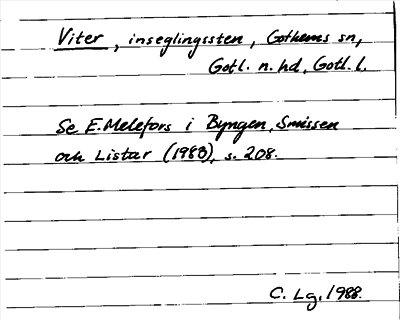 Viter, inseglingssten, Gothems sn,
Gotl. n. hd, Gotl. l.
Se E. Melefors i Byngen, Snissen
och Listar (1988), s. 208.
C. Lg. 1988.